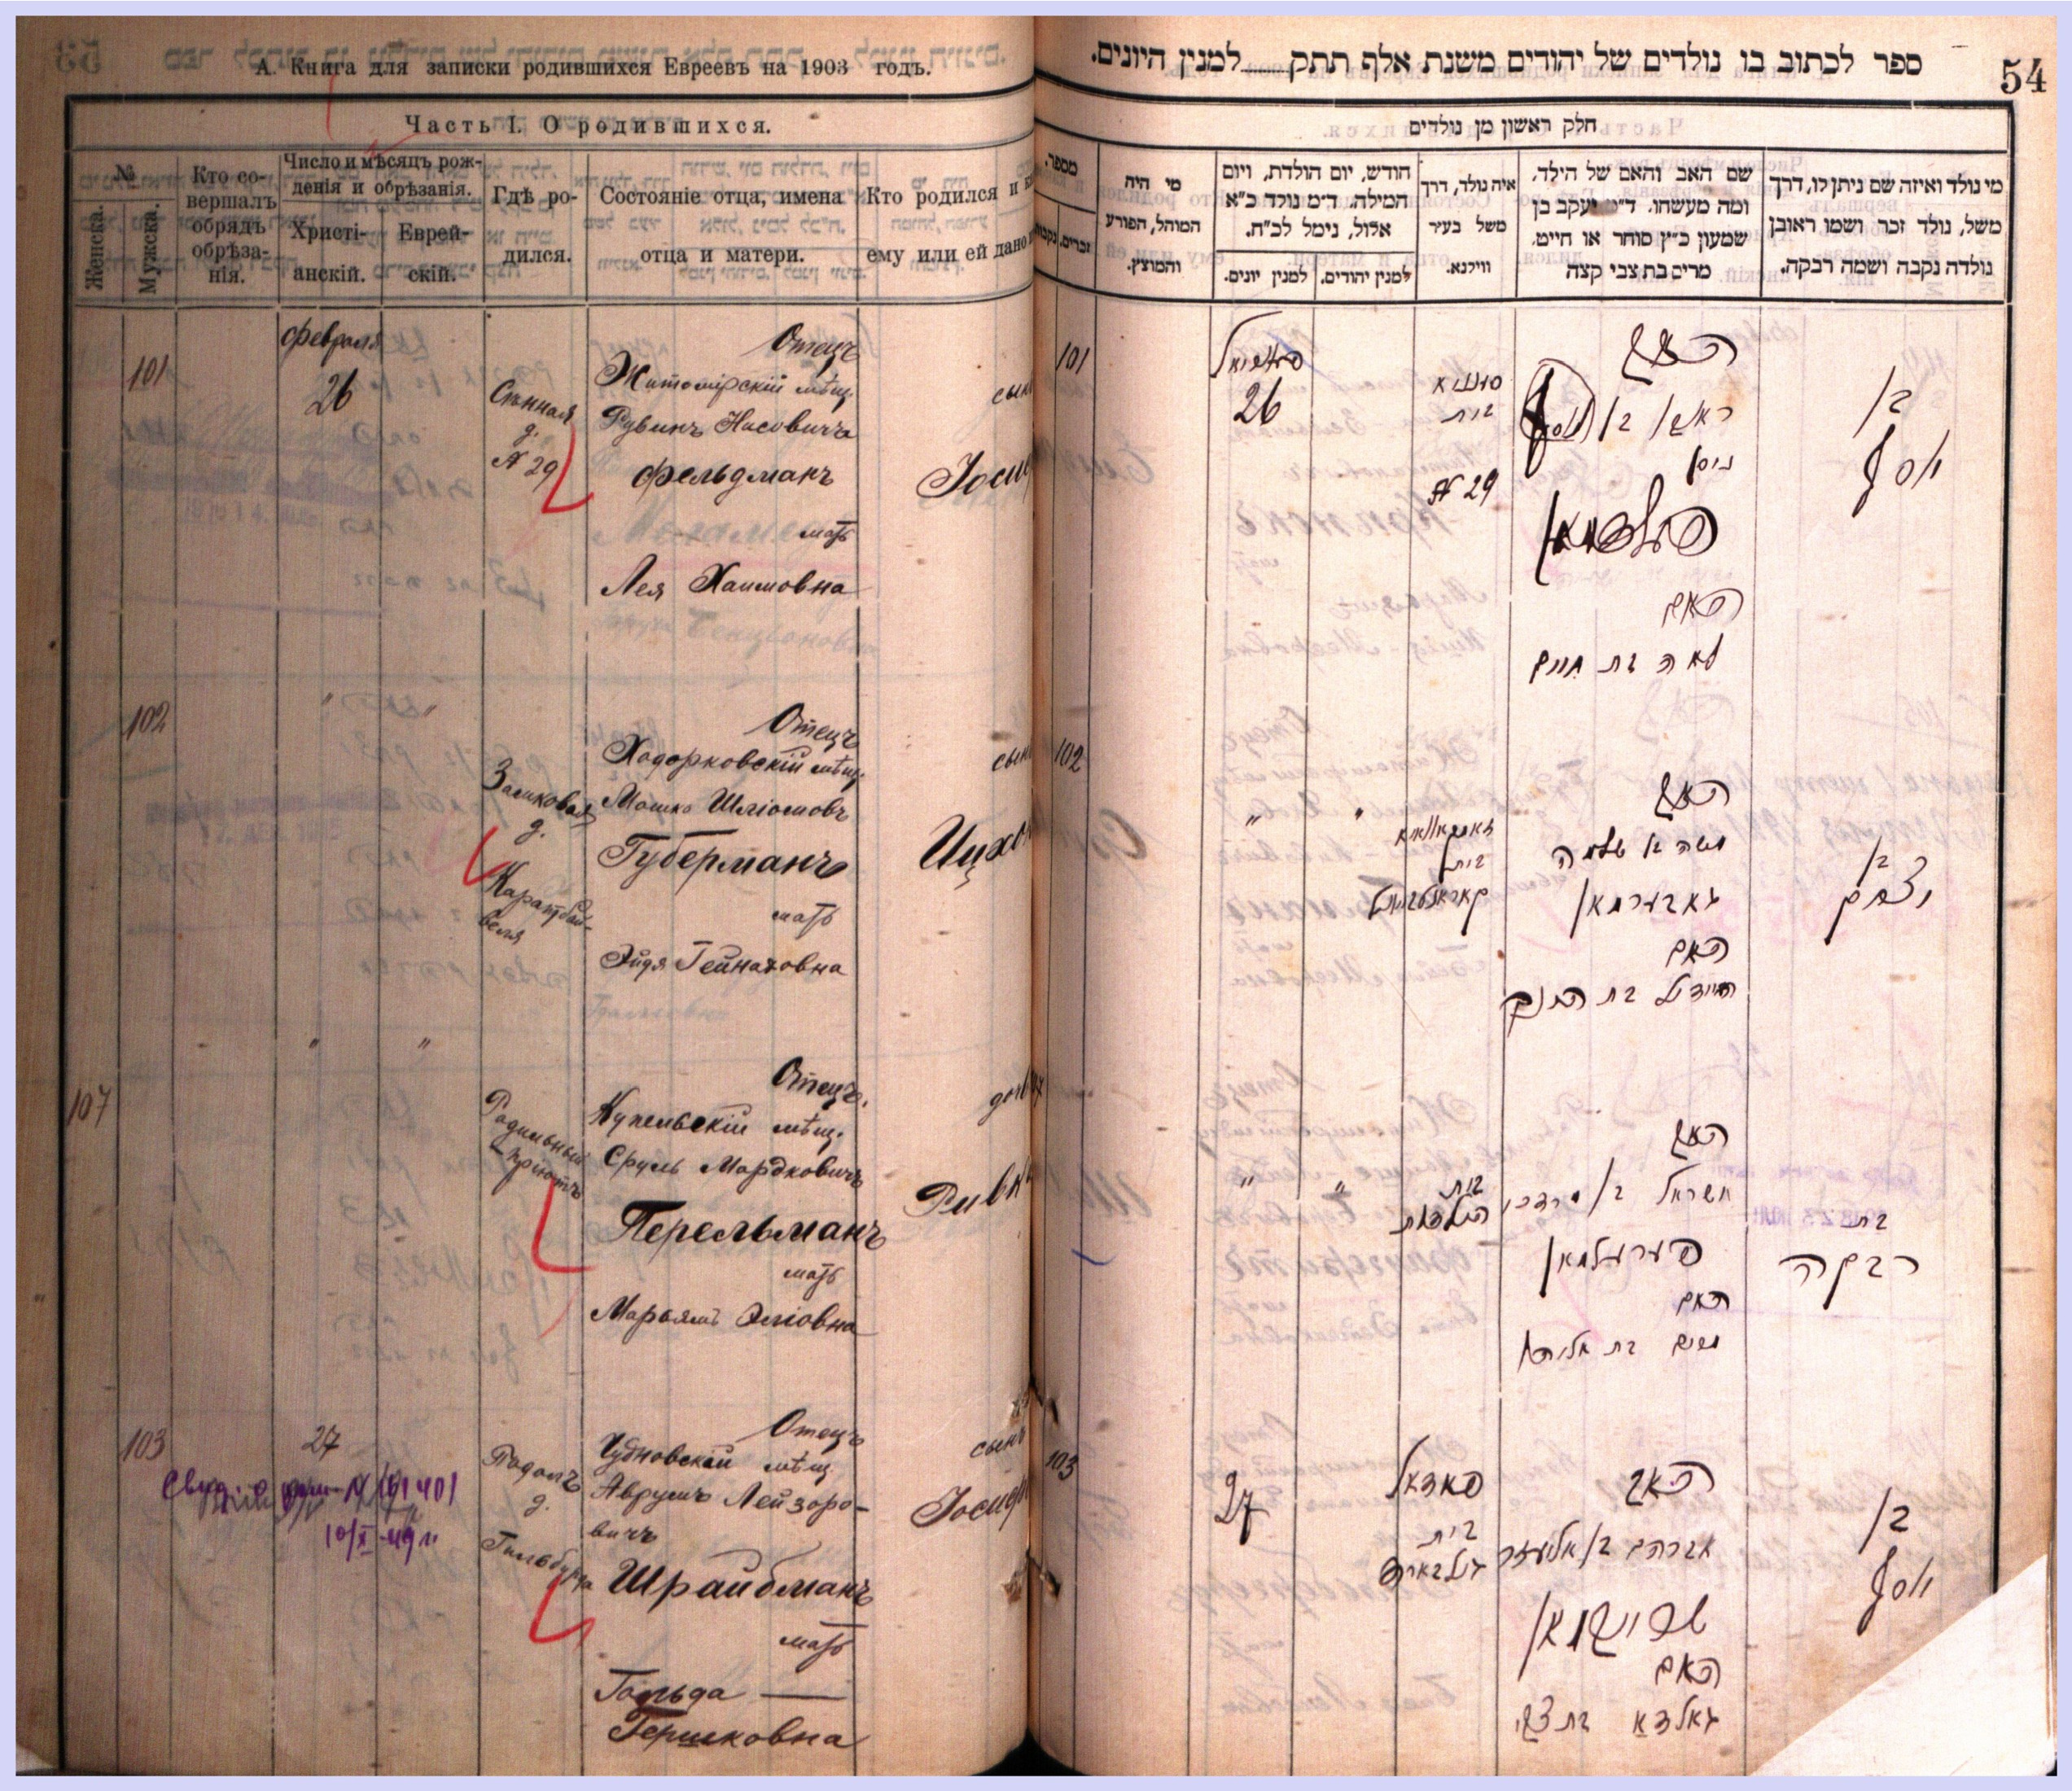 А. Книга для записки родившихся Евреевъ на 1903 годъ.
Часть I. О родившихся.
№
Женска.
Мужска.
Кто со-
вершалъ
обрядъ
обрѣза-
нія.
Число и мѣсяцъ рож-
денія и обрѣзанія.
Христі-
анскій.
Еврей-
скій.
Гдѣ ро-
дился.
Состояніе отца, имена
отца и матери.
Кто родился и
ему или ей дано
101
февраля
26
Сѣнная
д.
№ 29
Отецъ
Житомірскій мѣщ.
Рувинъ Нисовичъ
Фельдманъ
мать
Лея Хаимовна
сынъ
102
"
"
Замковая
д.
Отецъ
Ходорковскій мѣщ.
Мошко Шліомовъ
Губерманъ
мать
Эйдя Гейнаховна
сынъ
107
"
"
Родильный
пріютъ
Отецъ.
Купельскій мѣщ.
Сруль Мардковичъ
Перельманъ
мать
Марьямъ Эліовна
103
27
10/XI-49 г.
Подолъ
д.
Отецъ
Чудновскій мѣщ.
Аврумъ Лейзоро-
вичъ
Шрайбманъ
мать
Гольда
Гершковна
сынъ
Іосифъ
54
ספר לכתוב בו נולדים של יהודים משנת אלף תתק למנין היונים.
חלק ראשון מן נולדים
מספר.
זכרים.
נקבות
מי היה
המוהל, הפורע
והמוצץ.
חודש, יום הולדת, ויום
המילה. ד״מ נולד כ״א
אלול, נימל לכ״ח.
למנין יונים.
למנין יהודים.
איה נולד, דרך
משל בעיר
ווילנא.
שם האב והאם של הילד,
ומה מעשהו. ד״מ יעקב בן
שמעון כ״ץ סוחר או חייט.
מרים בת צבי קצה
מי נולד ואיזה שם ניתן לו, דרך
משל, נולד זכר ושמו ראובן
נולדה נקבה ושמה רבקה.
101
26
סעננא
בית
№ 29
האב
ראובן בן
ניסן
פעלדמאן
האם
לאה בת חיים
בן
יוסף
102
"
"
בית
האב
משה בן שלמה
גובערמאן
האם
היידיל בת העניך
בן
יצחק
"
"
בית
היולדות
האב
ישראל בן מרדכי
פערעלמאן
האם
מרים בת אליהו
בת
רבקה
103
27
פאדאל
בית
האב
אברהם בן אלעזר
שרייבמאן
האם
גאלדא בת צבי
בן
יוסף